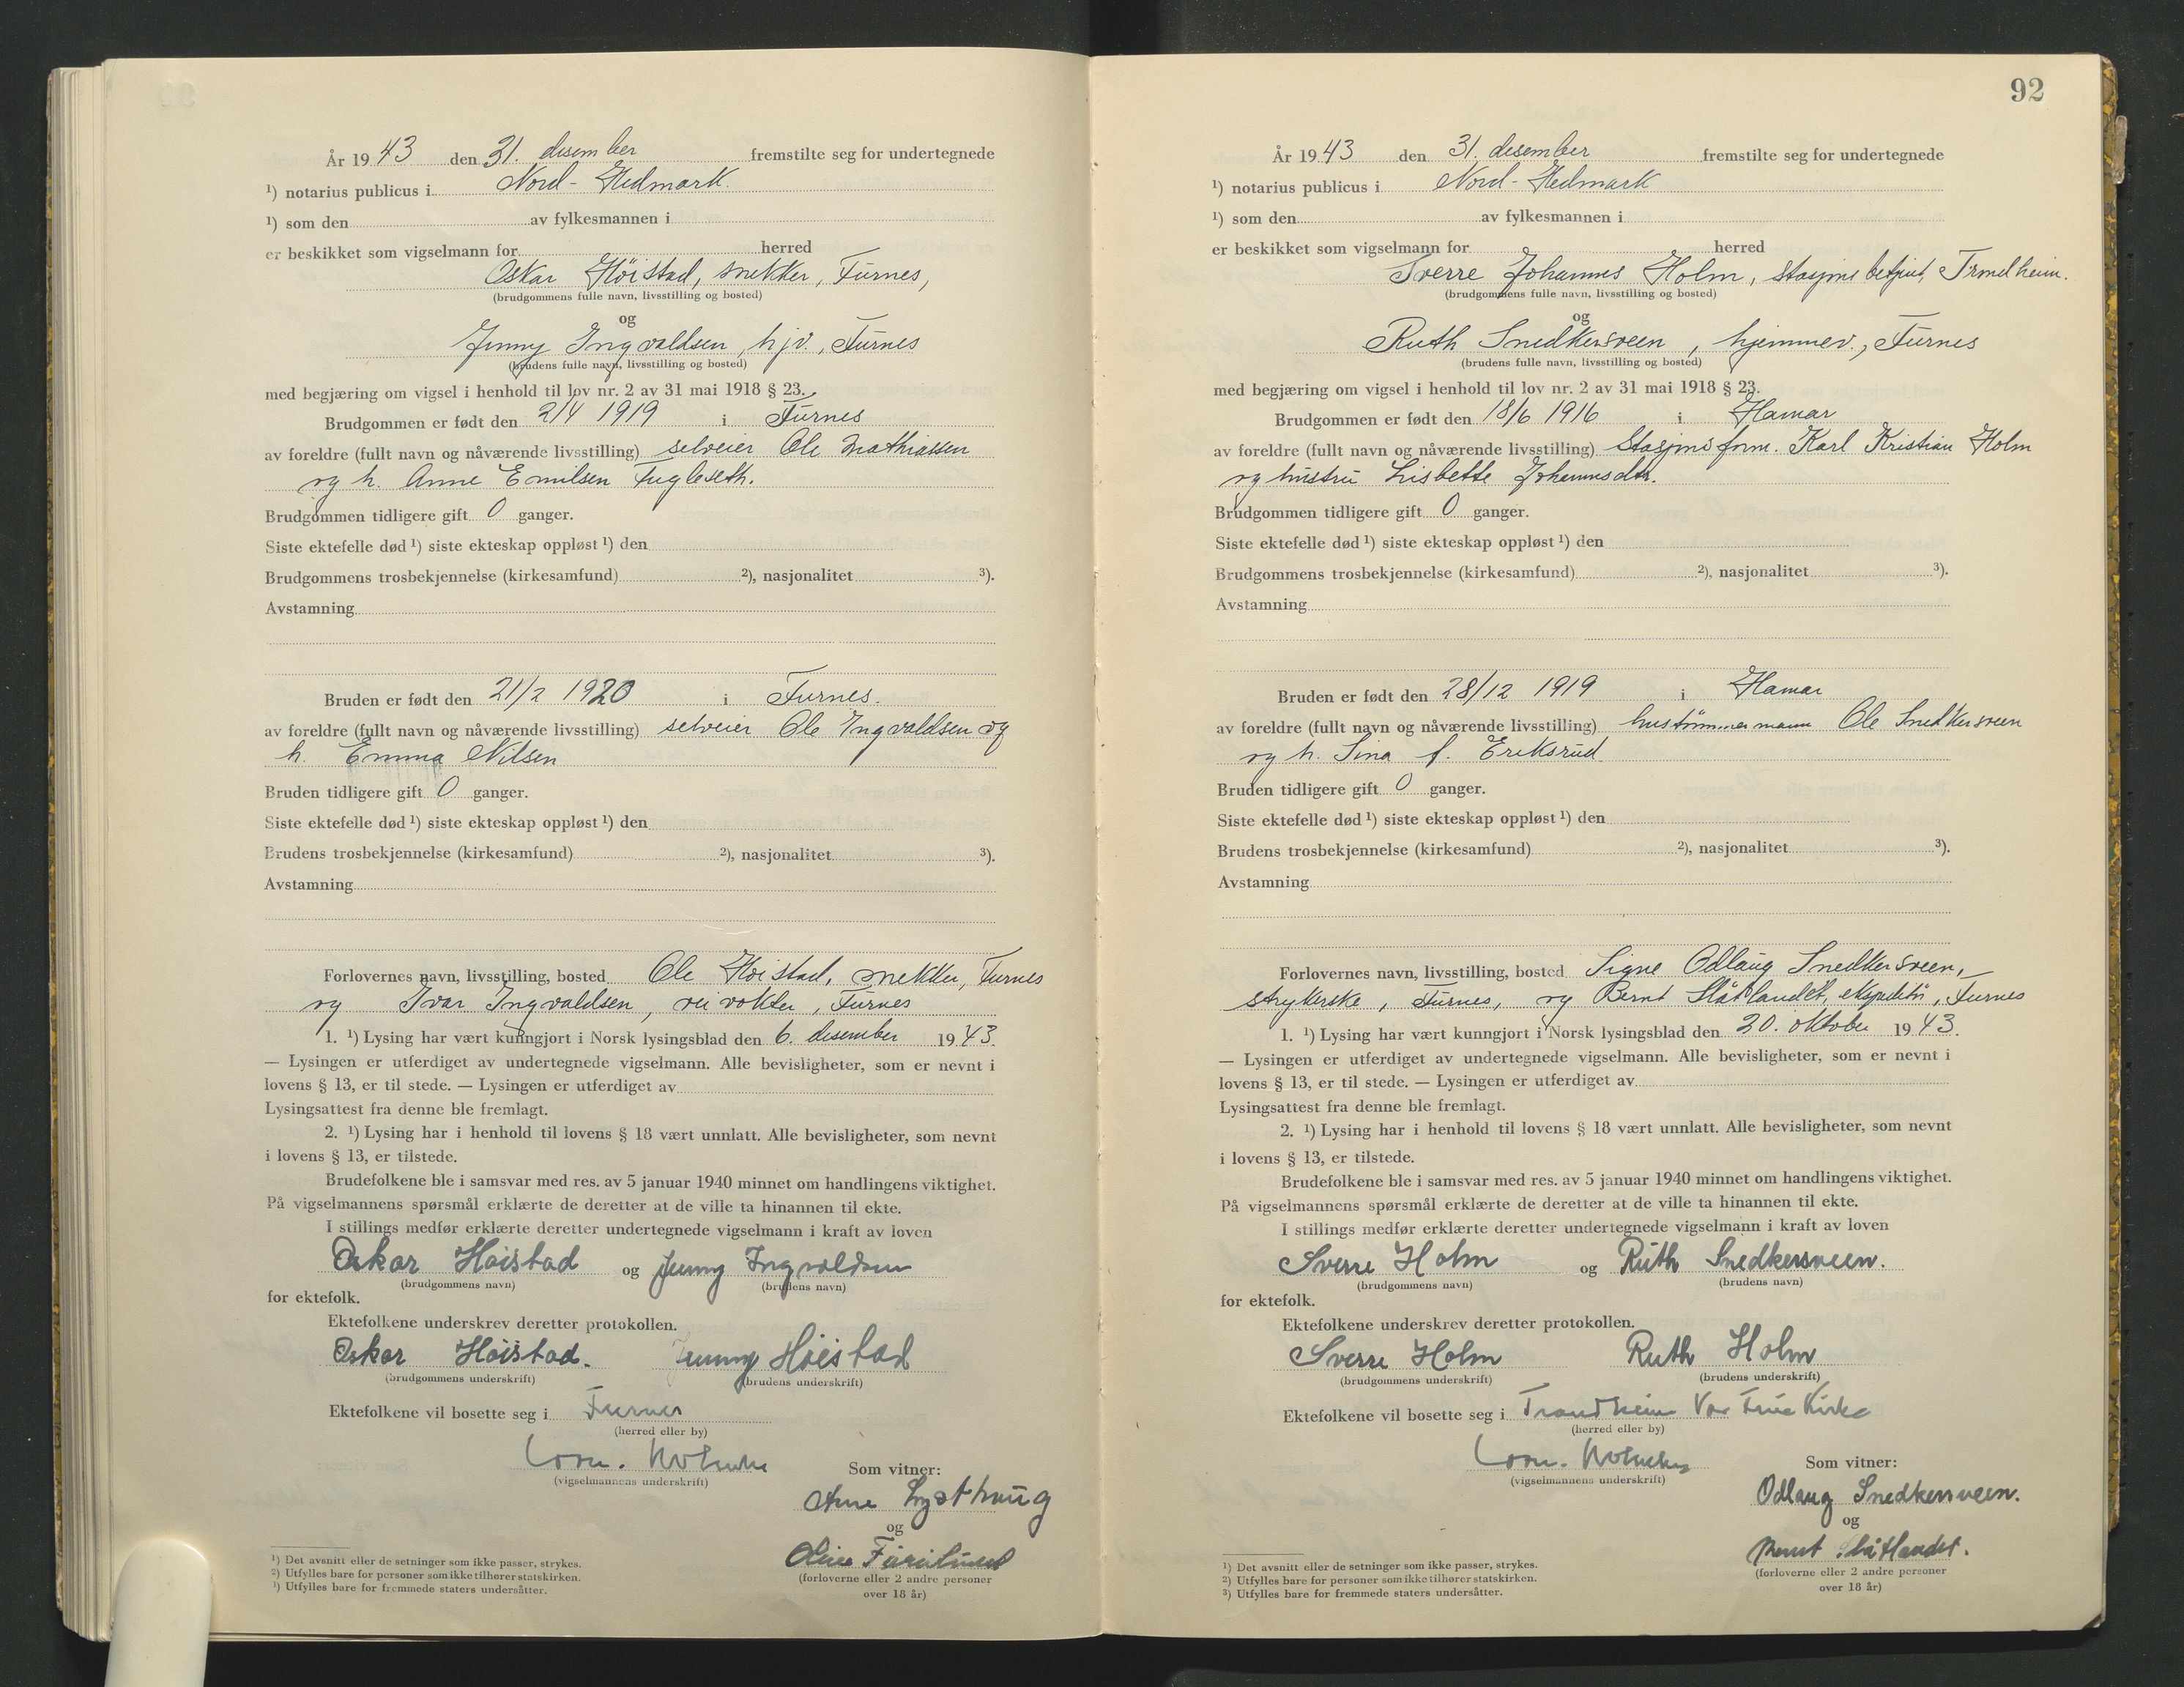 År 1943 den 31. desember fremstilte seg for undertegnede
¹) notarius publicus i Nord-Hedmark.
¹) som den av fylkesmannen i
er beskikket som vigselmann for herred
Oskar Høistad, snekker, Furnes,
(brudgommens fulle navn, livsstilling og bosted)
og
Jenny Ingvaldsen, hjv., Furnes
(brudens fulle navn, livsstilling og bosted)
med begjæring om vigsel i henhold til lov nr. 2 av 31 mai 1918 § 23.
Brudgommen er født den 2/4 1919 i Furnes
av foreldre (fullt navn og nåværende livsstilling) selveier Ole Mathiassen
og h. Anne Emilsen Fugleseth.
Brudgommen tidligere gift 0 ganger.
Siste ektefelle død ¹) siste ekteskap oppløst ¹) den
Brudgommens trosbekjennelse (kirkesamfund) ²), nasjonalitet ³).
Avstamning
Bruden er født den 21/2 1920 i Furnes.
av foreldre (fullt navn og nåværende livsstilling) selveier Ole Ingvaldsen og
h. Emma Nilsen
Bruden tidligere gift 0 ganger.
Siste ektefelle død ¹) siste ekteskap oppløst ¹) den
Brudens trosbekjennelse (kirkesamfund) ²), nasjonalitet ³).
Avstamning
Forlovernes navn, livsstilling, bosted Ole Høistad, snekker, Furnes
og Ivar Ingvaldsen, veivokter, Furnes
1. ¹) Lysing har vært kunngjort i Norsk lysingsblad den 6. desember 1943.
— Lysingen er utferdiget av undertegnede vigselmann. Alle bevisligheter, som er nevnt i
lovens § 13, er til stede. — Lysingen er utferdiget av
Lysingsattest fra denne ble fremlagt.
2. ¹) Lysing har i henhold til lovens § 18 vært unnlatt. Alle bevisligheter, som nevnt
i lovens § 13, er tilstede.
Brudefolkene ble i samsvar med res. av 5 januar 1940 minnet om handlingens viktighet.
På vigselmannens spørsmål erklærte de deretter at de ville ta hinannen til ekte.
I stillings medfør erklærte deretter undertegnede vigselmann i kraft av loven
Oskar Høistad og Jenny Ingvaldsen
(brudgommens navn) (brudens navn)
for ektefolk.
Ektefolkene underskrev deretter protokollen.
Oskar Høistad. Jenny Høistad
(brudgommens underskrift) (brudens underskrift)
Ektefolkene vil bosette seg i Furnes
(herred eller by)
(vigselmannens underskrift) Som vitner:
Lysthaug
og
(forloverne eller 2 andre personer
over 18 år)
¹) Det avsnitt eller de setninger som ikke passer, strykes.
²) Utfylles bare for personer som ikke tilhører statskirken.
³) Utfylles bare for fremmede staters undersåtter.
92
År 1943 den 31. desember fremstilte seg for undertegnede
¹) notarius publicus i Nord-Hedmark
¹) som den av fylkesmannen i
er beskikket som vigselmann for herred
Sverre Johannes Holm, stasjonsbetjent, Trondheim.
(brudgommens fulle navn, livsstilling og bosted)
og
Ruth Snedkersveen, hjemmev., Furnes
(brudens fulle navn, livsstilling og bosted)
med begjæring om vigsel i henhold til lov nr. 2 av 31 mai 1918 § 23.
Brudgommen er født den 18/6 1916 i Hamar
av foreldre (fullt navn og nåværende livsstilling) Stasjonsform. Karl Kristian Holm
og hustru Lisbette Johannesdtr.
Brudgommen tidligere gift 0 ganger.
Siste ektefelle død ¹) siste ekteskap oppløst ¹) den
Brudgommens trosbekjennelse (kirkesamfund) ²), nasjonalitet ³).
Avstamning
Bruden er født den 28/12 1919 i Hamar
av foreldre (fullt navn og nåværende livsstilling) hustømmermann Ole Snedkersveen
og h. Sina f. Eriksrud.
Bruden tidligere gift 0 ganger.
Siste ektefelle død ¹) siste ekteskap oppløst ¹) den
Brudens trosbekjennelse (kirkesamfund) ²), nasjonalitet ³).
Avstamning
Forlovernes navn, livsstilling, bosted Signe Odlaug Snedkersveen,
strykerske, Furnes, og Bernt Slåtlandet, ekspeditør, Furnes
1. ¹) Lysing har vært kunngjort i Norsk lysingsblad den 20. oktober 1943.
— Lysingen er utferdiget av undertegnede vigselmann. Alle bevisligheter, som er nevnt i
lovens § 13, er til stede. — Lysingen er utferdiget av
Lysingsattest fra denne ble fremlagt.
2. ¹) Lysing har i henhold til lovens § 18 vært unnlatt. Alle bevisligheter, som nevnt
i lovens § 13, er tilstede.
Brudefolkene ble i samsvar med res. av 5 januar 1940 minnet om handlingens viktighet.
På vigselmannens spørsmål erklærte de deretter at de ville ta hinannen til ekte.
I stillings medfør erklærte deretter undertegnede vigselmann i kraft av loven
Sverre Holm og Ruth Snedkersveen.
(brudgommens navn) (brudens navn)
for ektefolk.
Ektefolkene underskrev deretter protokollen.
Sverre Holm Ruth Holm
(brudgommens underskrift) (brudens underskrift)
Ektefolkene vil bosette seg i Trondheim Vor Frue Kirke
(herred eller by)
(vigselmannens underskrift) Som vitner:
Odlaug Snedkersveen.
og
Bernt Slåtlandet.
(forloverne eller 2 andre personer
over 18 år)
¹) Det avsnitt eller de setninger som ikke passer, strykes.
²) Utfylles bare for personer som ikke tilhører statskirken.
³) Utfylles bare for fremmede staters undersåtter.